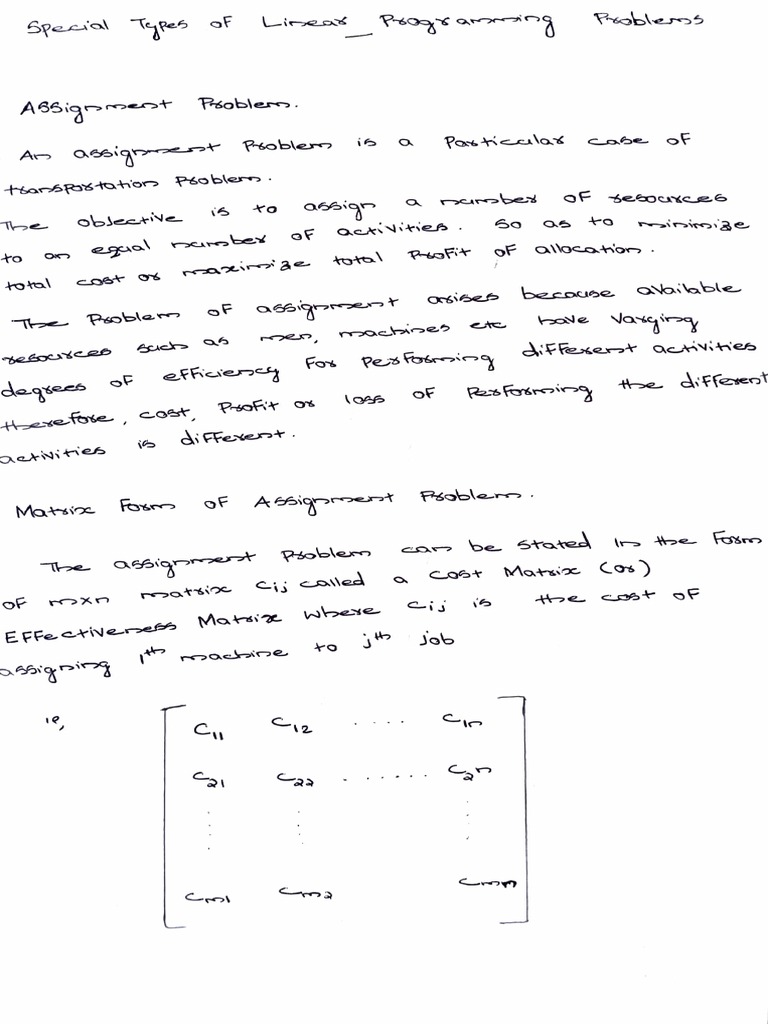 Special Types of Linear_ Programming Problems
Assignment Problem.
An assignment Problem is a Particular case of
transportation Problem.
The objective is to assign a number of resources
to an equal number of activities. So as to minimize
total cost or maximize total Profit of allocation.
The Problem of assignment arises because available
resources such as men, machines etc have varying
degrees of efficiency for Performing different activities
therefore, cost, Profit or loss of Performing the different
activities is different.
Matrix Form of Assignment Problem.
The assignment Problem can be stated in the Form
of mxn matrix Cij called a Cost Matrix (or)
Effectiveness Matrix where Cij is the cost of
assigning ith machine to jth job
ie,
C11 C12 .... C1n
C21 C22 ...... C2n
Cm1 Cm2 Cmn